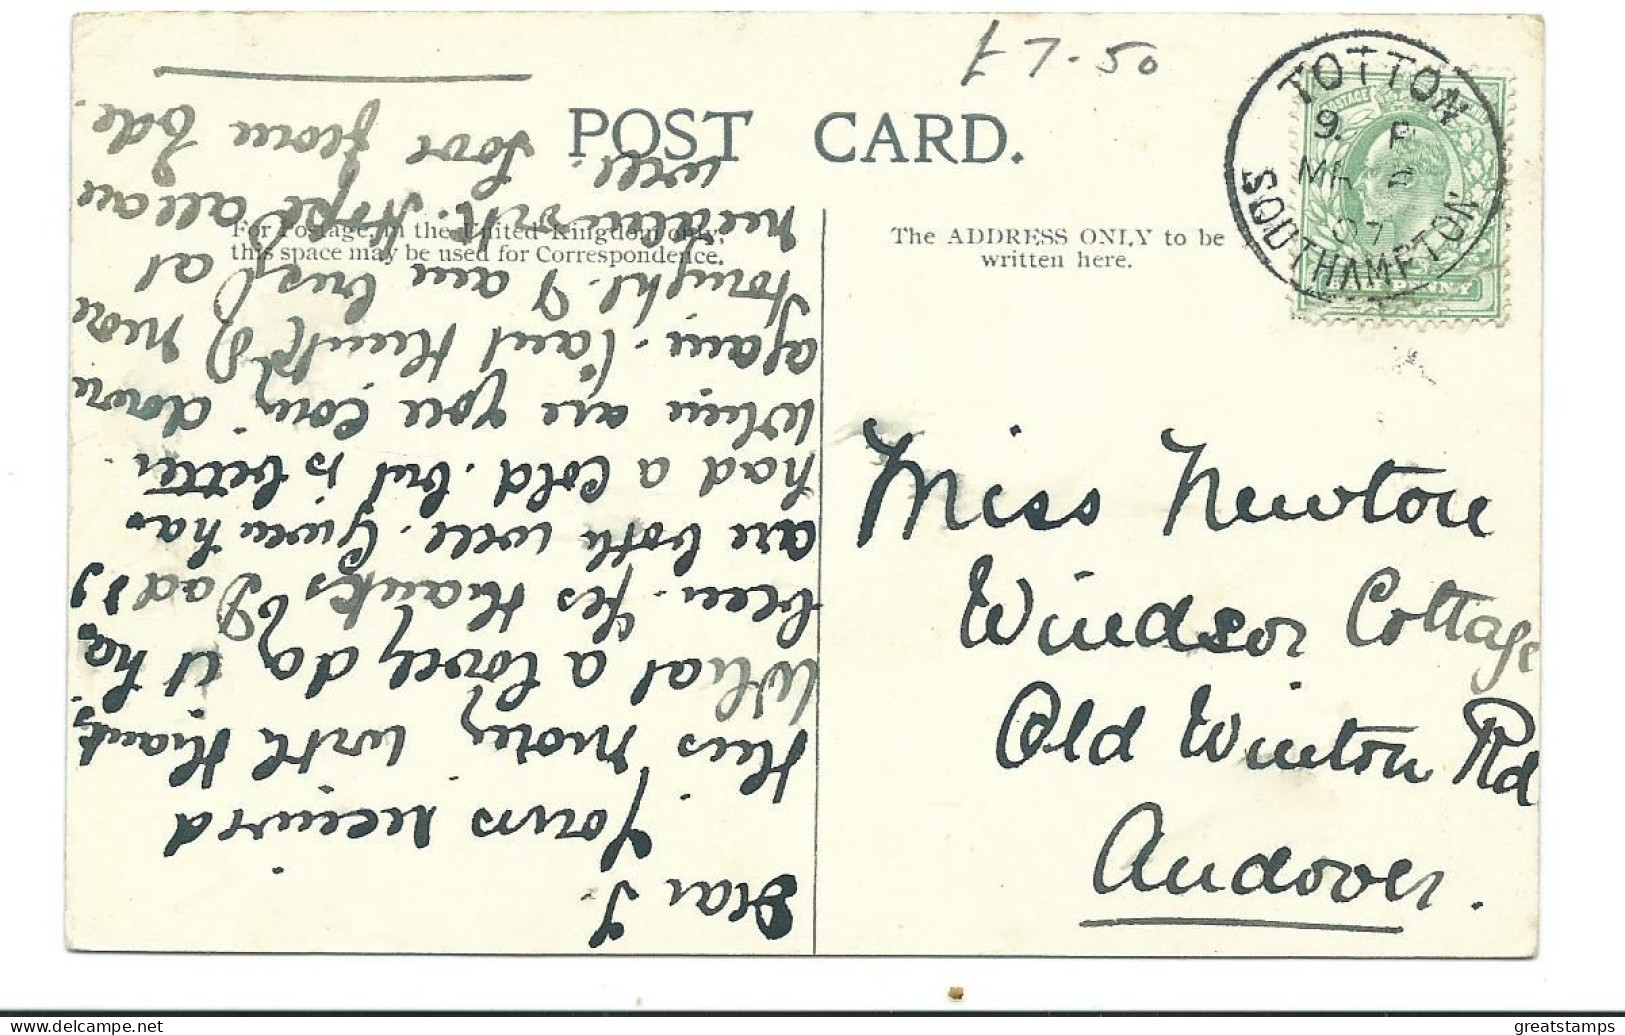 £7-50
POST CARD.
For Postage, in the United Kingdom only,
this space may be used for Correspondence.
The ADDRESS ONLY to be
written here.
TOTTON
SOUTHAMPTON
9. P
MR 2
07
POSTAGE
HALFPENNY
Miss Newton
Windsor Cottage
Old Winton Rd
Andover.
Dear J.
Yours received
this morng with thanks,
What a lovely day it has
been. Yes thanks Dad & I
are both well. Gwen has
had a cold. but is better.
When are you comg down
again. Cant think of more
tonight. I am busy at
needlework. Hope all are
well. Love from Ede.
greatstamps